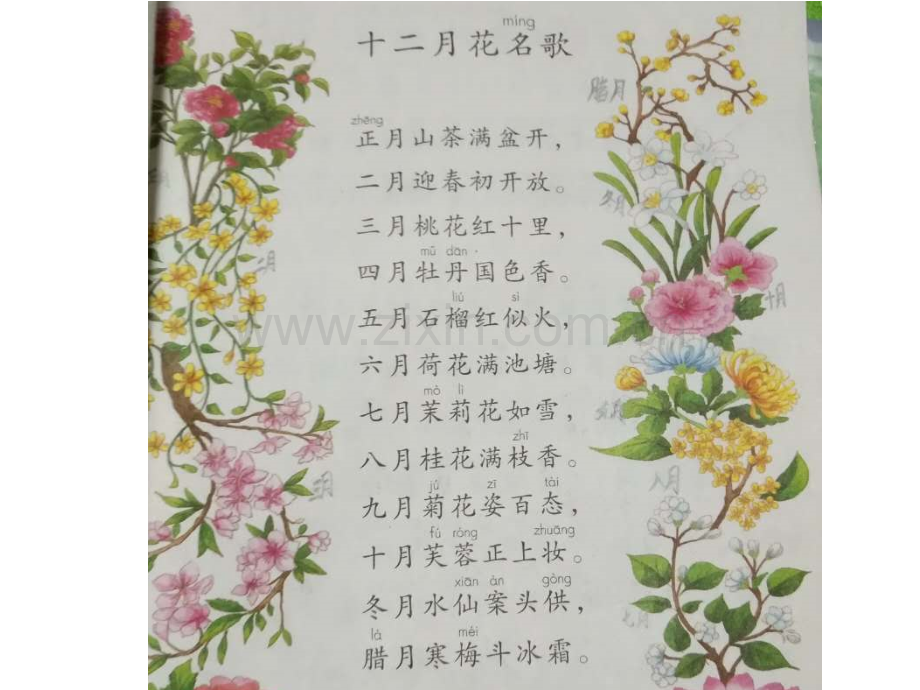 míng
十二月花名歌
zhēng
正月山茶满盆开，
二月迎春初开放。
三月桃花红十里，
mǔ dān
四月牡丹国色香。
liú sì
五月石榴红似火，
六月荷花满池塘。
mò lì
七月茉莉花如雪，
zhī
八月桂花满枝香。
jú zī tài
九月菊花姿百态，
fú róng zhuāng
十月芙蓉正上妆。
xiān àn gòng
冬月水仙案头供，
là méi
腊月寒梅斗冰霜。
腊月
冬月
十月
八月
七月
二月
www.zixin.com.cn